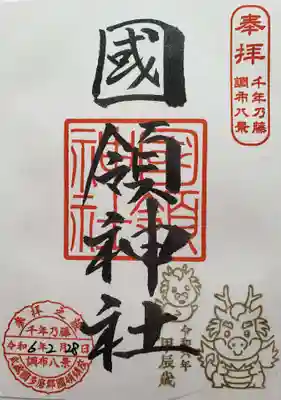 奉拝
千年乃藤
調布八景
國領神社
國領神社
奉拝之證
千年乃藤
令和6年2月28日
調布八景
令和六年
甲辰歳